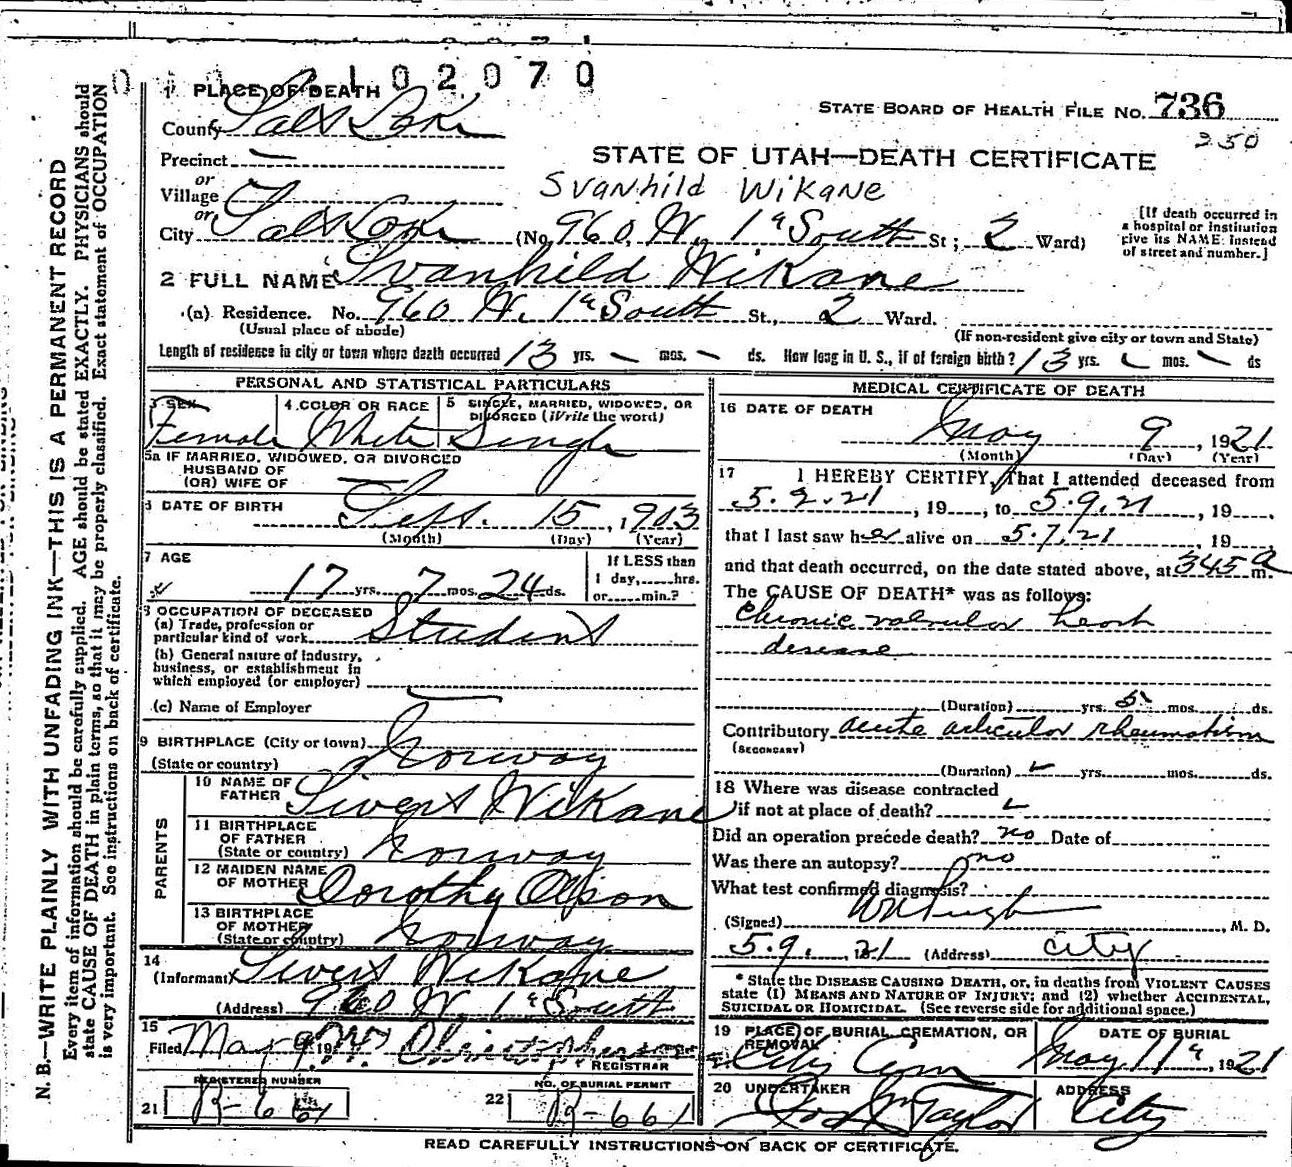 102070
1 PLACE OF DEATH
STATE BOARD OF HEALTH FILE NO. 736
County Salt Lake
250
Precinct —
STATE OF UTAH—DEATH CERTIFICATE
or
Village
Svanhild Wikane
or
City Salt Lake (No. 960 W. 1st South St; 2 Ward)
[If death occurred in a hospital or institution give its NAME instead of street and number.]
2 FULL NAME Svanhild Wikane
(a) Residence. No. 960 W. 1st South St., 2 Ward.
(Usual place of abode) (If non-resident give city or town and State)
Length of residence in city or town where death occurred 13 yrs. — mos. — ds. How long in U. S., if of foreign birth? 13 yrs. — mos. — ds
PERSONAL AND STATISTICAL PARTICULARS
3 SEX
Female
4 COLOR OR RACE
White
5 SINGLE, MARRIED, WIDOWED, OR DIVORCED (Write the word)
Single
5a IF MARRIED, WIDOWED, OR DIVORCED
HUSBAND OF
(OR) WIFE OF —
6 DATE OF BIRTH Sept. 15, 1903
(Month) (Day) (Year)
7 AGE
17 yrs. 7 mos. 24 ds.
If LESS than
1 day,......hrs.
or......min.?
8 OCCUPATION OF DECEASED
(a) Trade, profession or
particular kind of work Student
(b) General nature of industry,
business, or establishment in
which employed (or employer)
(c) Name of Employer
9 BIRTHPLACE (City or town)
(State or country) Norway
PARENTS
10 NAME OF
FATHER Sivert Wikane
11 BIRTHPLACE
OF FATHER
(State or country) Norway
12 MAIDEN NAME
OF MOTHER Dorothy Olson
13 BIRTHPLACE
OF MOTHER
(State or country) Norway
14
(Informant) Sivert Wikane
(Address) 960 W. 1st South
15
Filed May 9 19 Christopherson
REGISTRAR
REGISTERED NUMBER
21 B-661
NO. OF BURIAL PERMIT
22 B-661
MEDICAL CERTIFICATE OF DEATH
16 DATE OF DEATH
May 9, 1921
(Month) (Day) (Year)
17 I HEREBY CERTIFY, That I attended deceased from
5.2.21, 19...., to 5.9.21, 19....,
that I last saw her alive on 5.7.21, 19....
and that death occurred, on the date stated above, at 345 a m.
The CAUSE OF DEATH* was as follows:
Chronic valvular heart
disease
(Duration) yrs. 5 mos. ds.
Contributory acute articular rheumatism
(SECONDARY)
(Duration) yrs. mos. ds.
18 Where was disease contracted
if not at place of death?
Did an operation precede death? no Date of
Was there an autopsy? no
What test confirmed diagnosis?
(Signed) , M. D.
5.9., 1921 (Address) City
* State the DISEASE CAUSING DEATH, or, in deaths from VIOLENT CAUSES
state (1) MEANS AND NATURE OF INJURY; and (2) whether ACCIDENTAL,
SUICIDAL or HOMICIDAL. (See reverse side for additional space.)
19 PLACE OF BURIAL, CREMATION, OR
REMOVAL
City Cem
DATE OF BURIAL
May 11th, 1921
20 UNDERTAKER
Jos Wm Taylor
ADDRESS
City
READ CAREFULLY INSTRUCTIONS ON BACK OF CERTIFICATE.
N. B.—WRITE PLAINLY WITH UNFADING INK—THIS IS A PERMANENT RECORD
Every item of information should be carefully supplied. AGE should be stated EXACTLY. PHYSICIANS should
state CAUSE OF DEATH in plain terms, so that it may be properly classified. Exact statement of OCCUPATION
is very important. See instructions on back of certificate.